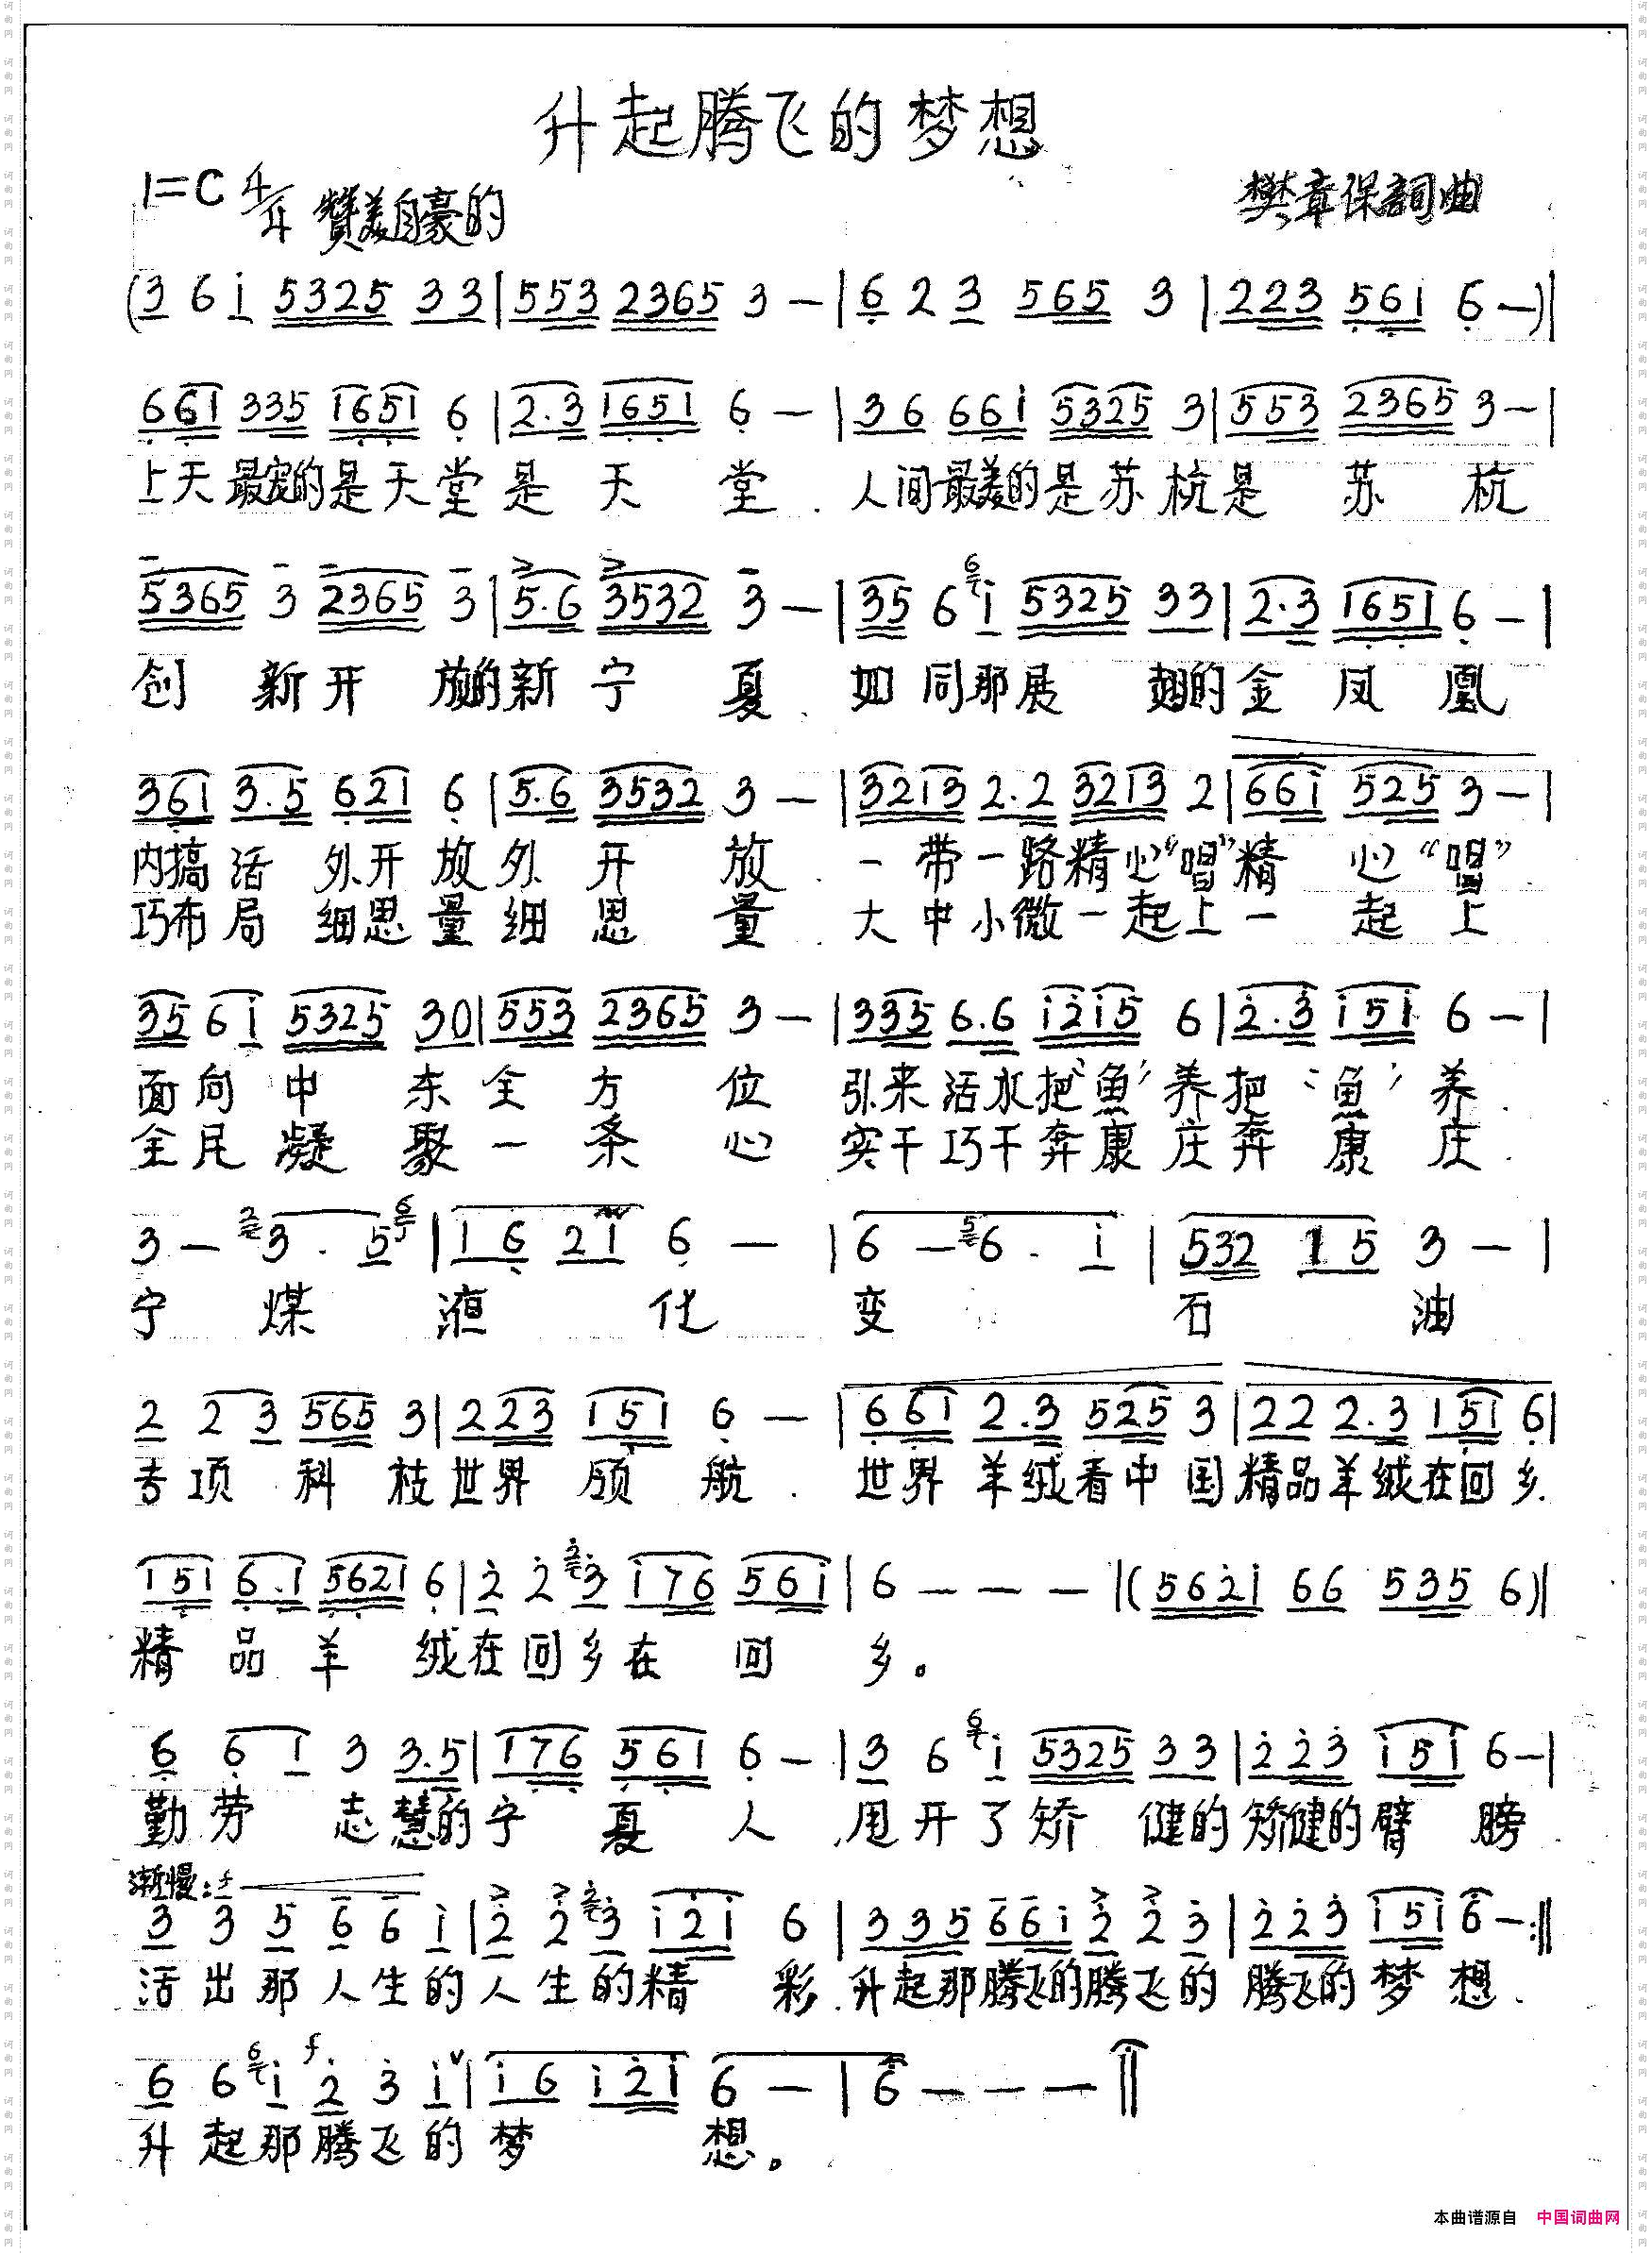 升起腾飞的梦想
1=C 4/4 赞美自豪的
樊章保詞曲
(3 6 i 5325 33|553 2365 3 —|6 2 3 565 3|223 561 6 —)|
661 335 1651 6|2.3 1651 6 —|36 661 5325 3|553 2365 3 —|
上天最宠的是天堂是天堂.人间最美的是苏杭是苏杭
5365 3 2365 3|5.6 3532 3 —|35 6 6i 5325 33|2.3 1651 6 —|
创新开放的新宁夏.如同那展翅的金凤凰
361 3.5 621 6|5.6 3532 3 —|3213 2.2 3213 2|66i 525 3 —|
内搞活外开放外开放.一带一路精心“唱”精心“唱”
巧布局细思量细思量.大中小微一起上一起上
35 6 i 5325 30|553 2365 3 —|335 6.6 i2i5 6|2.3 i5i 6 —|
面向中东全方位引来活水把‘鱼’养把‘鱼’养.
全民凝聚一条心实干巧干奔康庄奔康庄.
3 — 23. 5 6|16 21 6 —|6 — 56. i|532 15 3 —|
宁煤液化变石油
2 2 3 565 3|223 151 6 —|661 2.3 525 3|22 2.3 151 6|
专项科技世界领航.世界羊绒看中国精品羊绒在回乡.
151 6.1 5621 6|2 2 23 i76 56i|6 — — —|(562i 66 535 6)|
精品羊绒在回乡在回乡。
6 6 1 3 3.5|176 561 6 —|3 6 6i 5325 33|223 i5i 6 —|
勤劳志慧的宁夏人.甩开了矫健的矫健的臂膀
渐慢:
3 3 5 6 6 i|2 2 23 i2i 6|335 66i 2 2 3|223 i5i 6 —:‖
活出那人生的人生的精彩.升起那腾飞的腾飞的腾飞的梦想.
6 6 6i f 2 3 i v|i6 i2i 6 —|6 — — —‖
升起那腾飞的梦想。
本曲谱源自 中国词曲网